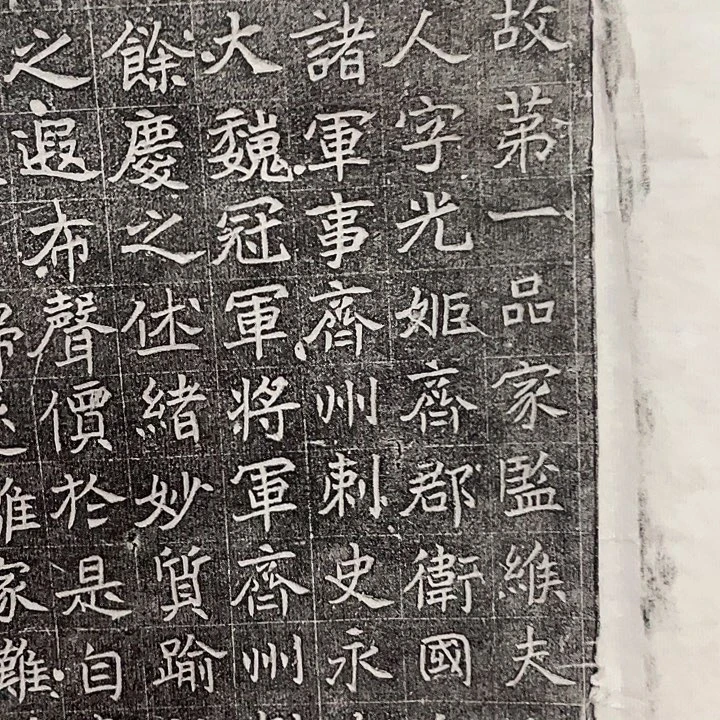 故苐一品家監維夫
人字光姬齊郡衛國
諸軍事齊州刺史永
大魏冠軍將軍齊州
餘慶之休緒妙質踰
之遐布聲價於是自
家難